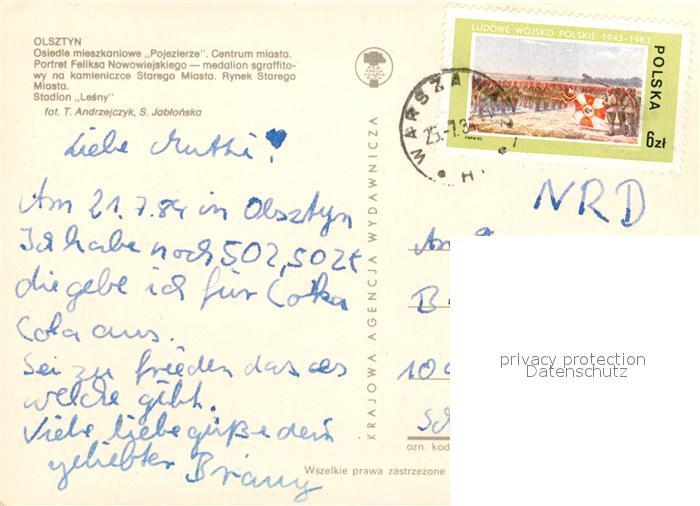 OLSZTYN
Osiedle mieszkaniowe „Pojezierze". Centrum miasta.
Portret Feliksa Nowowiejskiego — medalion sgraffito-
wy na kamieniczce Starego Miasta. Rynek Starego
Miasta.
Stadion „Leśny"
fot. T. Andrzejczyk, S. Jabłońska
LUDOWE WOJSKO POLSKIE 1943-1983
POLSKA
6zł
WARSZAWA
Liebe Mutti!
Am 21.7.84 in Olsztyn
Ich habe noch 502,50Zł
die gebe ich für Cocka
Cola aus.
Sei zu frieden das es
welche gibt.
Viele liebe grüße dein
geliebter
KRAJOWA AGENCJA WYDAWNICZA
NRD
An
B
10
Sc
ozn. kod
Wszelkie prawa zastrzeżone
privacy protection
Datenschutz